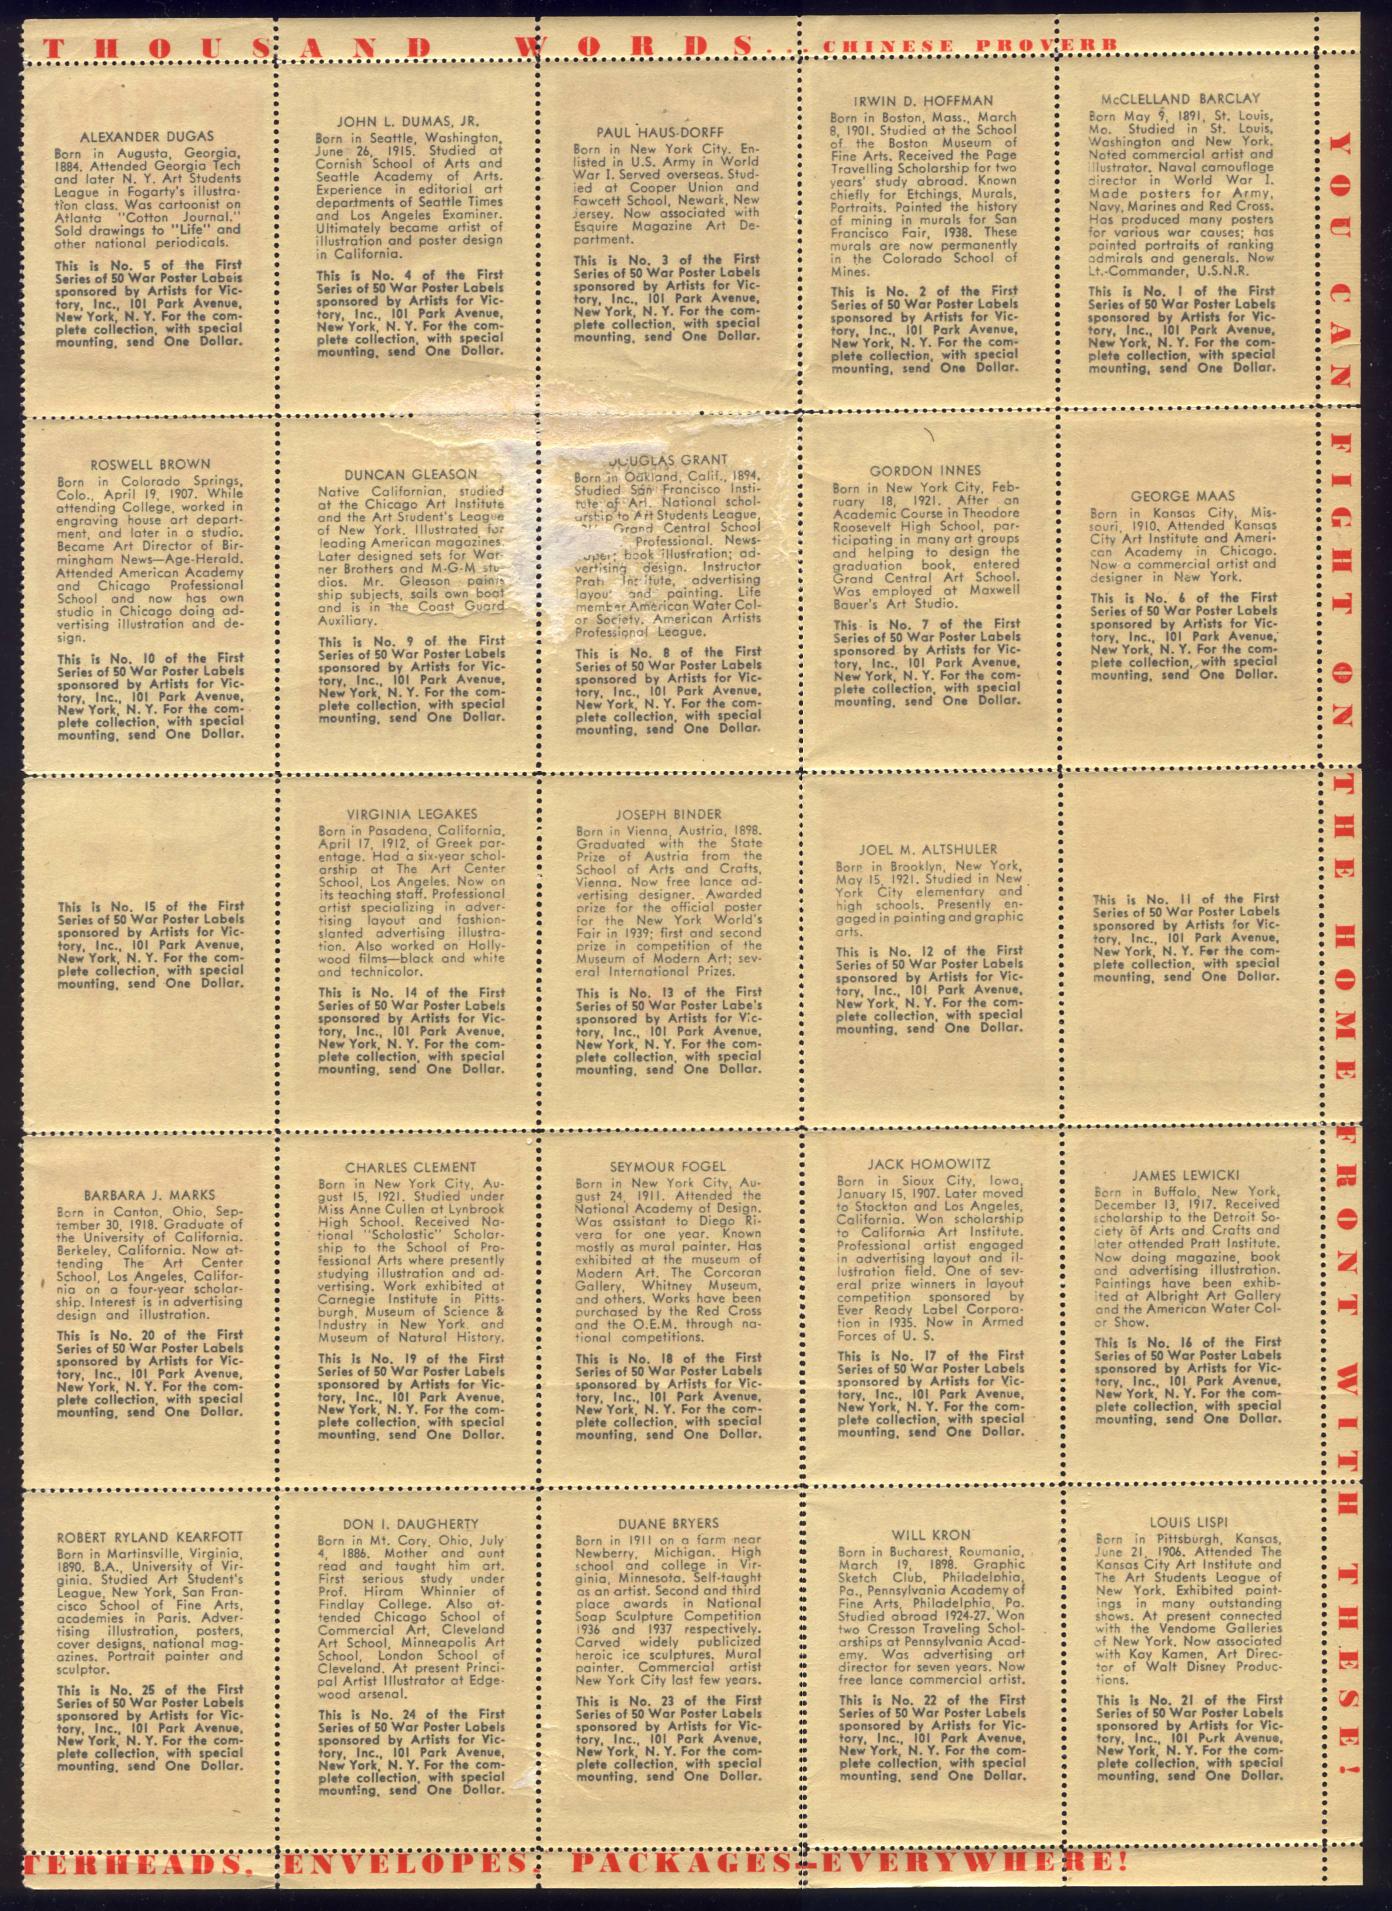 THOUSAND WORDS... CHINESE PROVERB
ALEXANDER DUGAS
Born in Augusta, Georgia,
1884. Attended Georgia Tech
and later N. Y. Art Students
League in Fogarty's illustra-
tion class. Was cartoonist on
Atlanta "Cotton Journal."
Sold drawings to "Life" and
other national periodicals.
This is No. 5 of the First
Series of 50 War Poster Labels
sponsored by Artists for Vic-
tory, Inc., 101 Park Avenue,
New York, N. Y. For the com-
plete collection, with special
mounting, send One Dollar.
JOHN L. DUMAS, JR.
Born in Seattle, Washington,
June 26, 1915. Studied at
Cornish School of Arts and
Seattle Academy of Arts.
Experience in editorial art
departments of Seattle Times
and Los Angeles Examiner.
Ultimately became artist of
illustration and poster design
in California.
This is No. 4 of the First
Series of 50 War Poster Labels
sponsored by Artists for Vic-
tory, Inc., 101 Park Avenue,
New York, N. Y. For the com-
plete collection, with special
mounting, send One Dollar.
PAUL HAUS-DORFF
Born in New York City. En-
listed in U.S. Army in World
War I. Served overseas. Stud-
ied at Cooper Union and
Fawcett School, Newark, New
Jersey. Now associated with
Esquire Magazine Art De-
partment.
This is No. 3 of the First
Series of 50 War Poster Labels
sponsored by Artists for Vic-
tory, Inc., 101 Park Avenue,
New York, N. Y. For the com-
plete collection, with special
mounting, send One Dollar.
IRWIN D. HOFFMAN
Born in Boston, Mass., March
8, 1901. Studied at the School
of the Boston Museum of
Fine Arts. Received the Page
Travelling Scholarship for two
years' study abroad. Known
chiefly for Etchings, Murals,
Portraits. Painted the history
of mining in murals for San
Francisco Fair, 1938. These
murals are now permanently
in the Colorado School of
Mines.
This is No. 2 of the First
Series of 50 War Poster Labels
sponsored by Artists for Vic-
tory, Inc., 101 Park Avenue,
New York, N. Y. For the com-
plete collection, with special
mounting, send One Dollar.
McCLELLAND BARCLAY
Born May 9, 1891, St. Louis,
Mo. Studied in St. Louis,
Washington and New York.
Noted commercial artist and
illustrator. Naval camouflage
director in World War I.
Made posters for Army,
Navy, Marines and Red Cross.
Has produced many posters
for various war causes; has
painted portraits of ranking
admirals and generals. Now
Lt.-Commander, U.S.N.R.
This is No. 1 of the First
Series of 50 War Poster Labels
sponsored by Artists for Vic-
tory, Inc., 101 Park Avenue,
New York, N. Y. For the com-
plete collection, with special
mounting, send One Dollar.
ROSWELL BROWN
Born in Colorado Springs,
Colo., April 19, 1907. While
attending College, worked in
engraving house art depart-
ment, and later in a studio.
Became Art Director of Bir-
mingham News—Age-Herald.
Attended American Academy
and Chicago Professional
School and now has own
studio in Chicago doing ad-
vertising illustration and de-
sign.
This is No. 10 of the First
Series of 50 War Poster Labels
sponsored by Artists for Vic-
tory, Inc., 101 Park Avenue,
New York, N. Y. For the com-
plete collection, with special
mounting, send One Dollar.
DUNCAN GLEASON
Native Californian, studied
at the Chicago Art Institute
and the Art Student's League
of New York. Illustrated for
leading American magazines.
Later designed sets for War-
ner Brothers and M-G-M stu-
dios. Mr. Gleason paints
ship subjects, sails own boat
and is in the Coast Guard
Auxiliary.
This is No. 9 of the First
Series of 50 War Poster Labels
sponsored by Artists for Vic-
tory, Inc., 101 Park Avenue,
New York, N. Y. For the com-
plete collection, with special
mounting, send One Dollar.
DOUGLAS GRANT
Born in Oakland, Calif., 1894.
Studied San Francisco Insti-
tute of Art. National schol-
arship to Art Students League,
Grand Central School
Professional. News-
paper; book illustration; ad-
vertising design. Instructor
Pratt Institute, advertising
layout and painting. Life
member American Water Col-
or Society. American Artists
Professional League.
This is No. 8 of the First
Series of 50 War Poster Labels
sponsored by Artists for Vic-
tory, Inc., 101 Park Avenue,
New York, N. Y. For the com-
plete collection, with special
mounting, send One Dollar.
GORDON INNES
Born in New York City, Feb-
ruary 18, 1921. After an
Academic Course in Theodore
Roosevelt High School, par-
ticipating in many art groups
and helping to design the
graduation book, entered
Grand Central Art School.
Was employed at Maxwell
Bauer's Art Studio.
This is No. 7 of the First
Series of 50 War Poster Labels
sponsored by Artists for Vic-
tory, Inc., 101 Park Avenue,
New York, N. Y. For the com-
plete collection, with special
mounting, send One Dollar.
GEORGE MAAS
Born in Kansas City, Mis-
souri, 1910. Attended Kansas
City Art Institute and Ameri-
can Academy in Chicago.
Now a commercial artist and
designer in New York.
This is No. 6 of the First
Series of 50 War Poster Labels
sponsored by Artists for Vic-
tory, Inc., 101 Park Avenue,
New York, N. Y. For the com-
plete collection, with special
mounting, send One Dollar.
This is No. 15 of the First
Series of 50 War Poster Labels
sponsored by Artists for Vic-
tory, Inc., 101 Park Avenue,
New York, N. Y. For the com-
plete collection, with special
mounting, send One Dollar.
VIRGINIA LEGAKES
Born in Pasadena, California,
April 17, 1912, of Greek par-
entage. Had a six-year schol-
arship at The Art Center
School, Los Angeles. Now on
its teaching staff. Professional
artist specializing in adver-
tising layout and fashion-
slanted advertising illustra-
tion. Also worked on Holly-
wood films—black and white
and technicolor.
This is No. 14 of the First
Series of 50 War Poster Labels
sponsored by Artists for Vic-
tory, Inc., 101 Park Avenue,
New York, N. Y. For the com-
plete collection, with special
mounting, send One Dollar.
JOSEPH BINDER
Born in Vienna, Austria, 1898.
Graduated with the State
Prize of Austria from the
School of Arts and Crafts,
Vienna. Now free lance ad-
vertising designer. Awarded
prize for the official poster
for the New York World's
Fair in 1939; first and second
prize in competition of the
Museum of Modern Art; sev-
eral International Prizes.
This is No. 13 of the First
Series of 50 War Poster Labe's
sponsored by Artists for Vic-
tory, Inc., 101 Park Avenue,
New York, N. Y. For the com-
plete collection, with special
mounting, send One Dollar.
JOEL M. ALTSHULER
Born in Brooklyn, New York,
May 15, 1921. Studied in New
York City elementary and
high schools. Presently en-
gaged in painting and graphic
arts.
This is No. 12 of the First
Series of 50 War Poster Labels
sponsored by Artists for Vic-
tory, Inc., 101 Park Avenue,
New York, N. Y. For the com-
plete collection, with special
mounting, send One Dollar.
This is No. 11 of the First
Series of 50 War Poster Labels
sponsored by Artists for Vic-
tory, Inc., 101 Park Avenue,
New York, N. Y. For the com-
plete collection, with special
mounting, send One Dollar.
BARBARA J. MARKS
Born in Canton, Ohio, Sep-
tember 30, 1918. Graduate of
the University of California.
Berkeley, California. Now at-
tending The Art Center
School, Los Angeles, Califor-
nia on a four-year scholar-
ship. Interest is in advertising
design and illustration.
This is No. 20 of the First
Series of 50 War Poster Labels
sponsored by Artists for Vic-
tory, Inc., 101 Park Avenue,
New York, N. Y. For the com-
plete collection, with special
mounting, send One Dollar.
CHARLES CLEMENT
Born in New York City, Au-
gust 15, 1921. Studied under
Miss Anne Cullen at Lynbrook
High School. Received Na-
tional "Scholastic" Scholar-
ship to the School of Pro-
fessional Arts where presently
studying illustration and ad-
vertising. Work exhibited at
Carnegie Institute in Pitts-
burgh, Museum of Science &
Industry in New York and
Museum of Natural History.
This is No. 19 of the First
Series of 50 War Poster Labels
sponsored by Artists for Vic-
tory, Inc., 101 Park Avenue,
New York, N. Y. For the com-
plete collection, with special
mounting, send One Dollar.
SEYMOUR FOGEL
Born in New York City, Au-
gust 24, 1911. Attended the
National Academy of Design.
Was assistant to Diego Ri-
vera for one year. Known
mostly as mural painter. Has
exhibited at the museum of
Modern Art, The Corcoran
Gallery, Whitney Museum,
and others. Works have been
purchased by the Red Cross
and the O.E.M. through na-
tional competitions.
This is No. 18 of the First
Series of 50 War Poster Labels
sponsored by Artists for Vic-
tory, Inc., 101 Park Avenue,
New York, N. Y. For the com-
plete collection, with special
mounting, send One Dollar.
JACK HOMOWITZ
Born in Sioux City, Iowa,
January 15, 1907. Later moved
to Stockton and Los Angeles,
California. Won scholarship
to California Art Institute.
Professional artist engaged
in advertising layout and il-
lustration field. One of sev-
eral prize winners in layout
competition sponsored by
Ever Ready Label Corpora-
tion in 1935. Now in Armed
Forces of U. S.
This is No. 17 of the First
Series of 50 War Poster Labels
sponsored by Artists for Vic-
tory, Inc., 101 Park Avenue,
New York, N. Y. For the com-
plete collection, with special
mounting, send One Dollar.
JAMES LEWICKI
Born in Buffalo, New York,
December 13, 1917. Received
scholarship to the Detroit So-
ciety of Arts and Crafts and
later attended Pratt Institute.
Now doing magazine, book
and advertising illustration.
Paintings have been exhib-
ited at Albright Art Gallery
and the American Water Col-
or Show.
This is No. 16 of the First
Series of 50 War Poster Labels
sponsored by Artists for Vic-
tory, Inc., 101 Park Avenue,
New York, N. Y. For the com-
plete collection, with special
mounting, send One Dollar.
ROBERT RYLAND KEARFOTT
Born in Martinsville, Virginia,
1890. B.A., University of Vir-
ginia. Studied Art Student's
League, New York, San Fran-
cisco School of Fine Arts,
academies in Paris. Adver-
tising illustration, posters,
cover designs, national mag-
azines. Portrait painter and
sculptor.
This is No. 25 of the First
Series of 50 War Poster Labels
sponsored by Artists for Vic-
tory, Inc., 101 Park Avenue,
New York, N. Y. For the com-
plete collection, with special
mounting, send One Dollar.
DON I. DAUGHERTY
Born in Mt. Cory, Ohio, July
4, 1886. Mother and aunt
read and taught him art.
First serious study under
Prof. Hiram Whinnier of
Findlay College. Also at-
tended Chicago School of
Commercial Art, Cleveland
Art School, Minneapolis Art
School, London School of
Cleveland. At present Princi-
pal Artist Illustrator at Edge-
wood arsenal.
This is No. 24 of the First
Series of 50 War Poster Labels
sponsored by Artists for Vic-
tory, Inc., 101 Park Avenue,
New York, N. Y. For the com-
plete collection, with special
mounting, send One Dollar.
DUANE BRYERS
Born in 1911 on a farm near
Newberry, Michigan. High
school and college in Vir-
ginia, Minnesota. Self-taught
as an artist. Second and third
place awards in National
Soap Sculpture Competition
1936 and 1937 respectively.
Carved widely publicized
heroic ice sculptures. Mural
painter. Commercial artist
New York City last few years.
This is No. 23 of the First
Series of 50 War Poster Labels
sponsored by Artists for Vic-
tory, Inc., 101 Park Avenue,
New York, N. Y. For the com-
plete collection, with special
mounting, send One Dollar.
WILL KRON
Born in Bucharest, Roumania,
March 19, 1898. Graphic
Sketch Club, Philadelphia,
Pa., Pennsylvania Academy of
Fine Arts, Philadelphia, Pa.
Studied abroad 1924-27. Won
two Cresson Traveling Schol-
arships at Pennsylvania Acad-
emy. Was advertising art
director for seven years. Now
free lance commercial artist.
This is No. 22 of the First
Series of 50 War Poster Labels
sponsored by Artists for Vic-
tory, Inc., 101 Park Avenue,
New York, N. Y. For the com-
plete collection, with special
mounting, send One Dollar.
LOUIS LISPI
Born in Pittsburgh, Kansas,
June 21, 1906. Attended The
Kansas City Art Institute and
The Art Students League of
New York. Exhibited paint-
ings in many outstanding
shows. At present connected
with the Vendome Galleries
of New York. Now associated
with Kay Kamen, Art Direc-
tor of Walt Disney Produc-
tions.
This is No. 21 of the First
Series of 50 War Poster Labels
sponsored by Artists for Vic-
tory, Inc., 101 Park Avenue,
New York, N. Y. For the com-
plete collection, with special
mounting, send One Dollar.
YOU CAN FIGHT ON THE HOME FRONT WITH THESE!
TERHEADS, ENVELOPES, PACKAGES—EVERYWHERE!